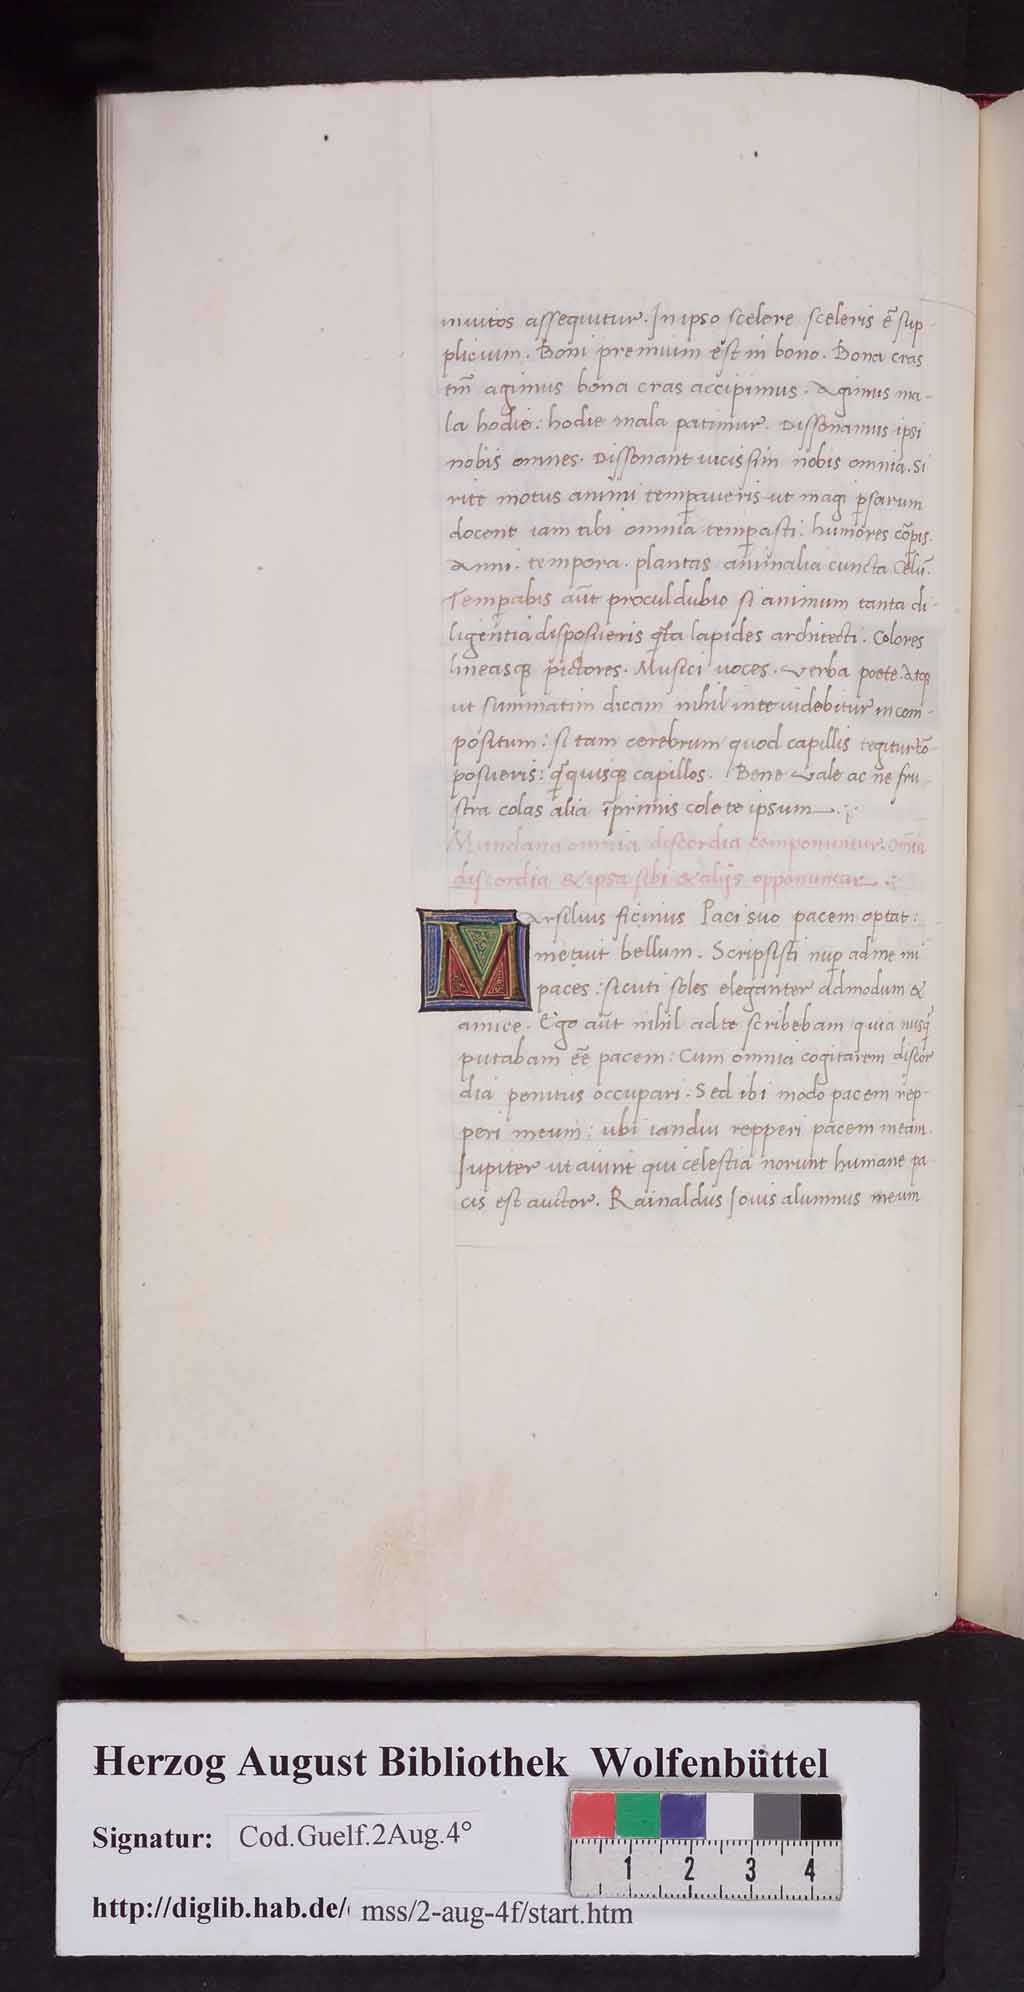 inuitos assequitur. In ipso scelere sceleris ē sup-
plicium. Boni premium est in bono. Bona cras
tm̄ agimus bona cras accipimus. Agimus ma-
la hodie: hodie mala patimur. Dissonamus ipsi
nobis omnes. Dissonant uicissim nobis omnia. Si
rite motus animi temperaueris ut magi persarum
docent iam tibi omnia temperasti. humores corꝑis.
Anni. tempora. plantas animalia cuncta Celū.
Temperabis aūt proculdubio si animum tanta di-
ligentia disposueris q̄ta lapides architecti. Colores
lineasq; pictores. Musici uoces. Verba poete. Atq;
ut summatim dicam nihil inte uidebitur incom-
positum: si tam cerebrum quod capillis tegitur cō-
posueris: q̄ quisq; capillos. Bene Vale ac ne fru-
stra colas alia īprimis cole te ipsum.
Mundana omnia discordia componuntur. Omīa
discordia & ipsa sibi & alijs opponuntur.
Marsilius ficinius Paci suo pacem optat:
metuit bellum. Scripsisti nuꝑ ad me mi
paces: sicuti soles eleganter admodum &
amice. Ego aūt nihil ad te scribebam quia nusq̄
putabam eē pacem: Cum omnia cogitarem discor
dia penitus occupari. Sed ibi modo pacem rep-
peri meum: ubi iandiu repperi pacem meam.
Iupiter ut aiunt qui celestia norunt humane pa-
cis est auctor. Rainaldus Iouis alumnus meum
Herzog August Bibliothek Wolfenbüttel
Signatur: Cod.Guelf.2Aug.4°
1 2 3 4
http://diglib.hab.de/ mss/2-aug-4f/start.htm